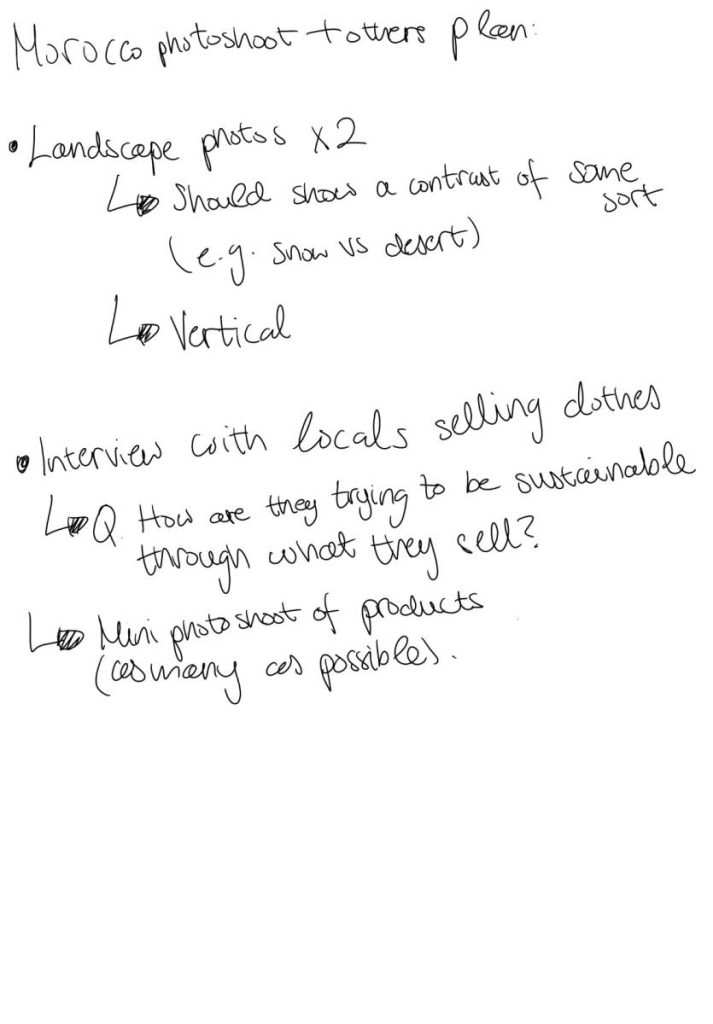 Morocco photoshoot + others plan:
• Landscape photos x2
↳ Should show a contrast of some
sort
(e.g. snow vs desert)
↳ Vertical
• Interview with locals selling clothes
↳ Q. How are they trying to be sustainable
through what they sell?
↳ Mini photoshoot of products
(as many as possible).